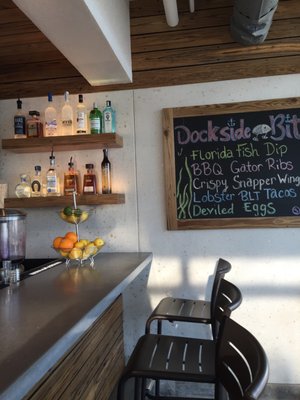 Dockside Bit
Florida Fish Dip
BBQ Gator Ribs
Crispy Snapper Wing
Lobster BLT Tacos
Deviled Eggs